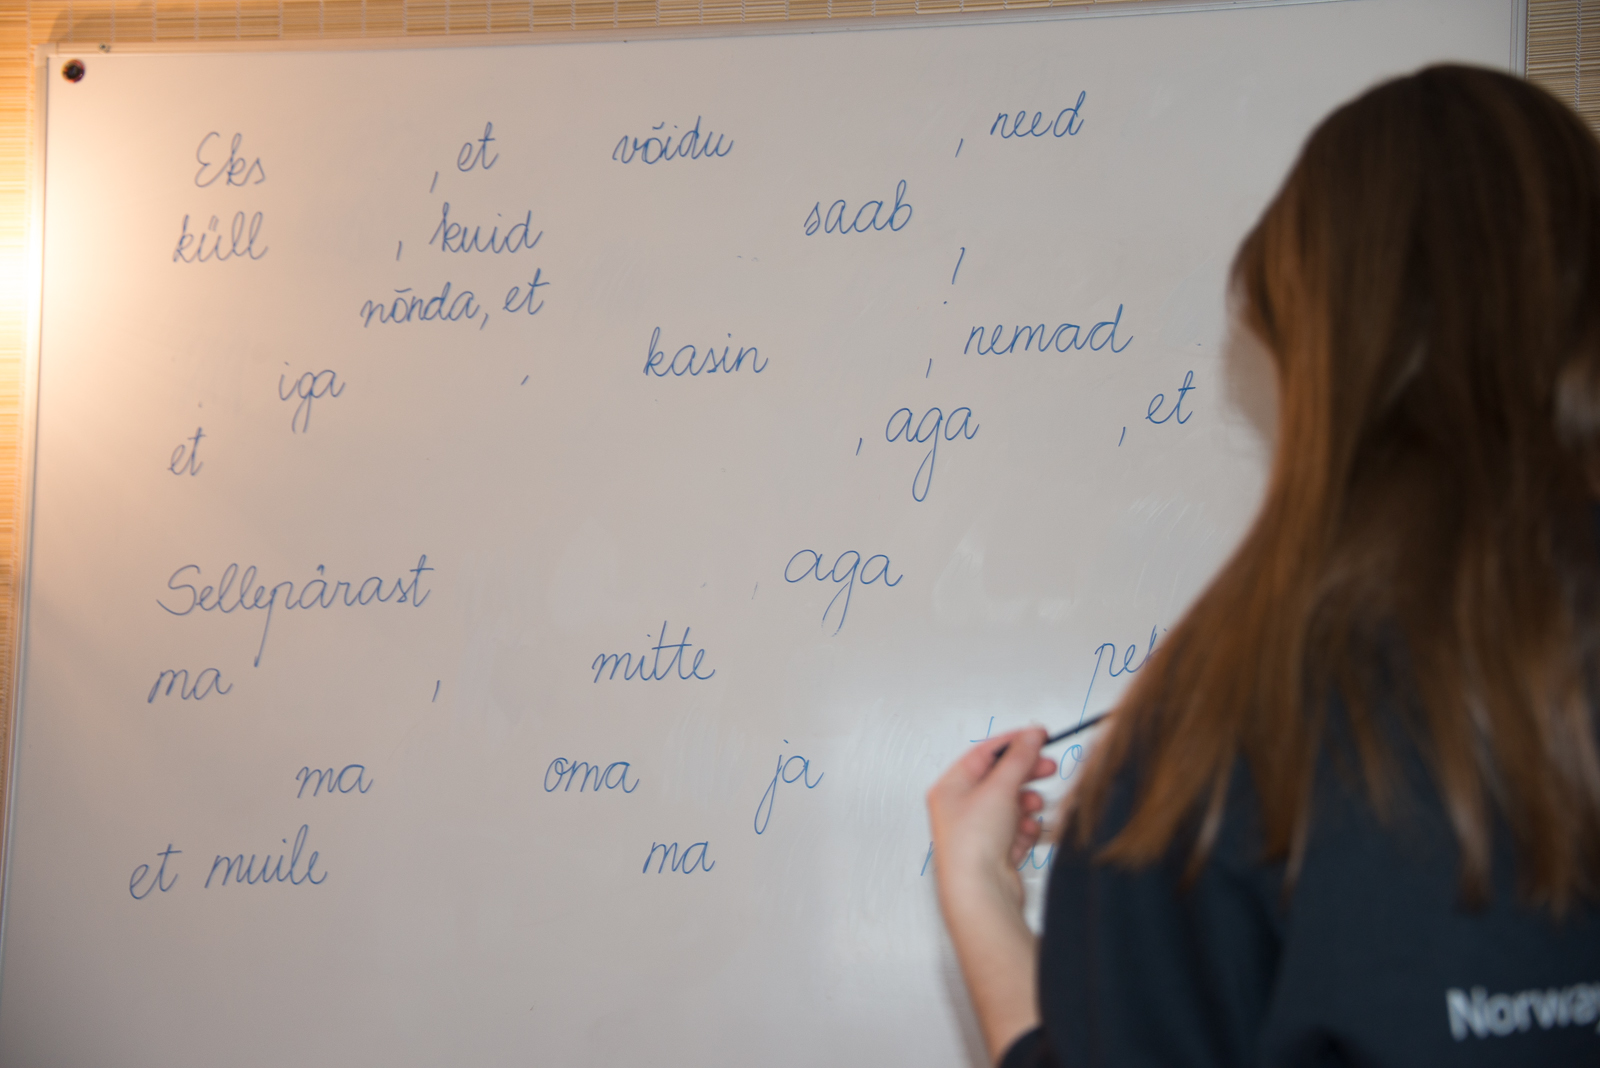 Eks , et võidu , need
küll , kuid saab
nõnda, et !
iga , kasin , nemad
et , aga , et
Sellepärast aga
ma , mitte
ma oma ja
et muile ma
Norway